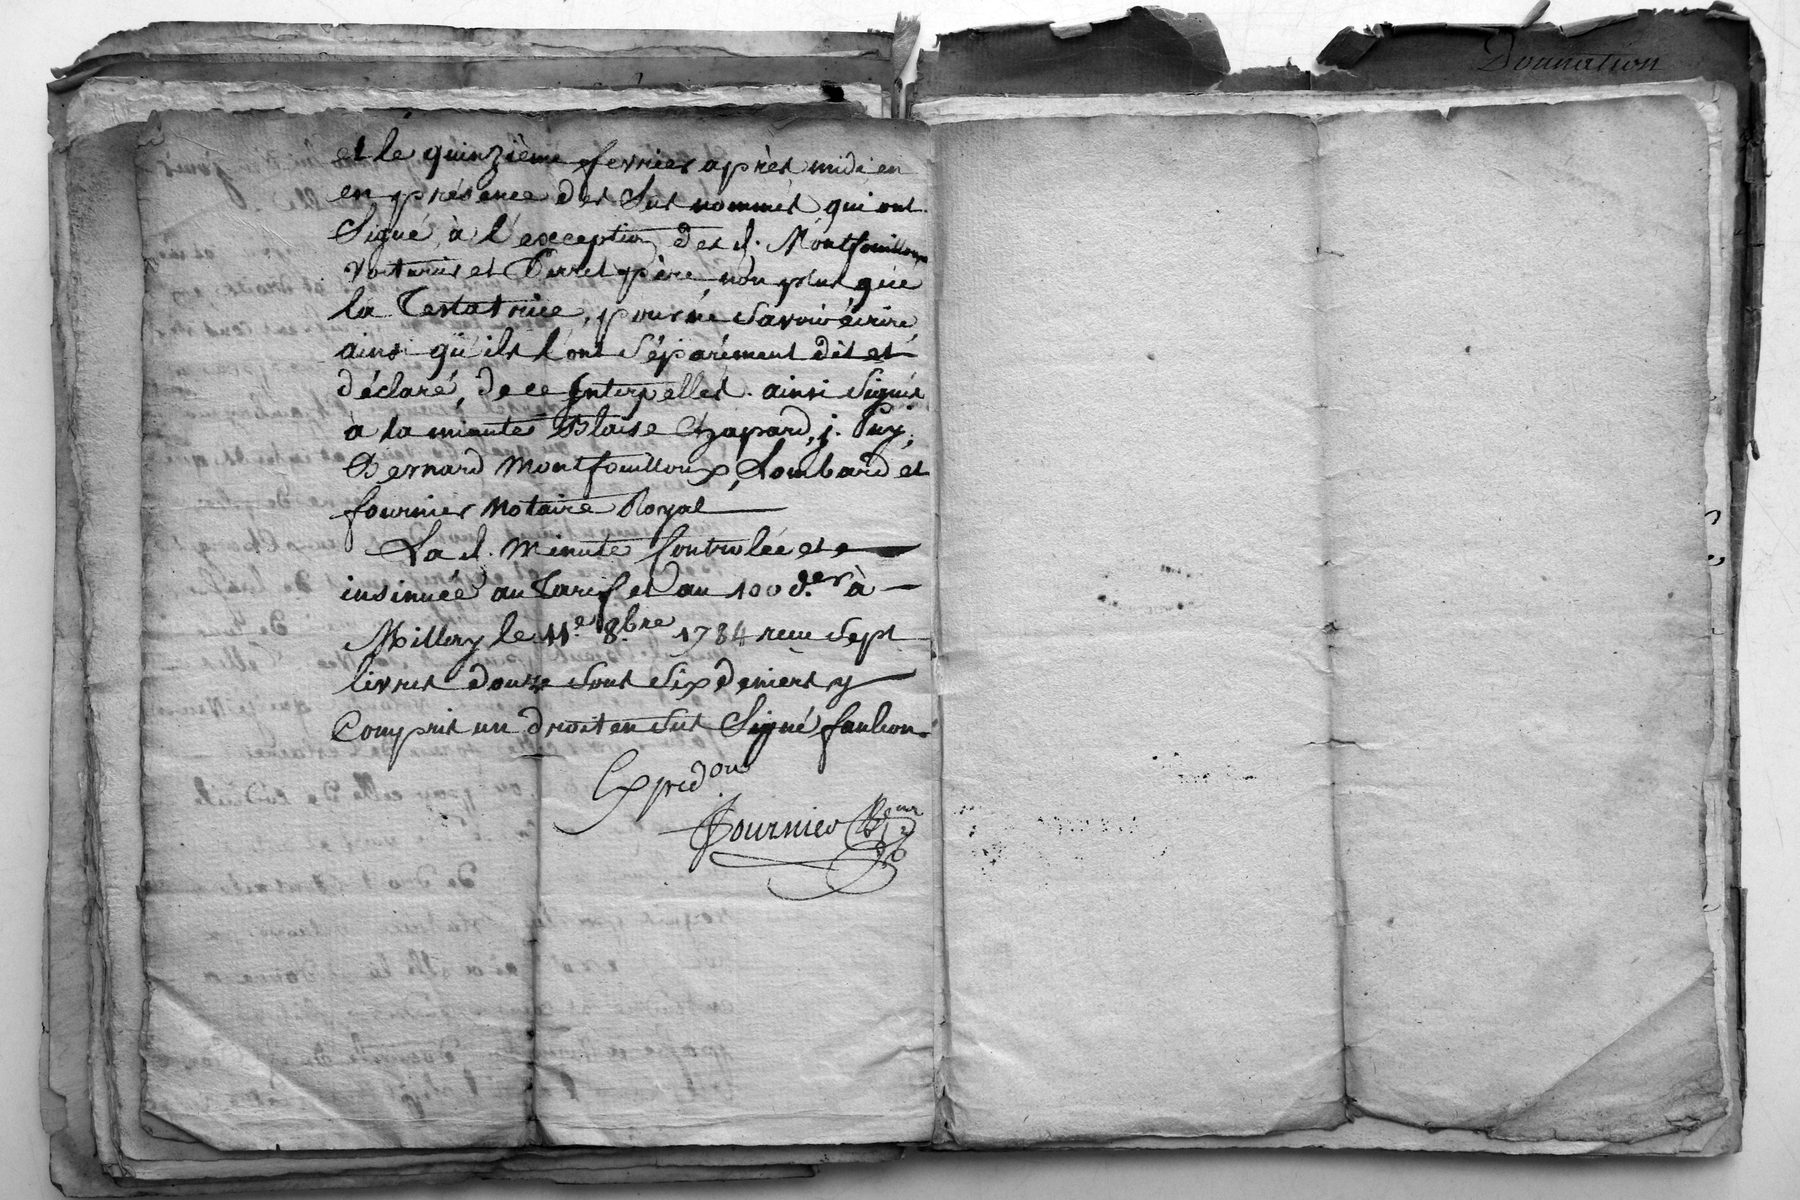 et le quinzième fevrier après midi en
en présence des sus nommés qui ont
Signé, à l'exception des d. Montfouilloux
Voituriers et Perret père non plus que
la Testatrice, pour ne savoir écrire
ainsi qu'ils l'ont séparément dit et
déclaré, de ce Interpellés. ainsi signés
à la minute Blaise Chapard, j. Puy,
Bernard Montfouilloux, Lombard et
fournier Notaire Royal
La d. Minute Controlée et
insinuée au Tarif et au 100 d.er à
Millery le 11.e 8.bre 1784 reçu sept
livres douze sous six deniers y
Compris un droit en sus Signé faulion.
Expéd.on
Fournier
Donnation